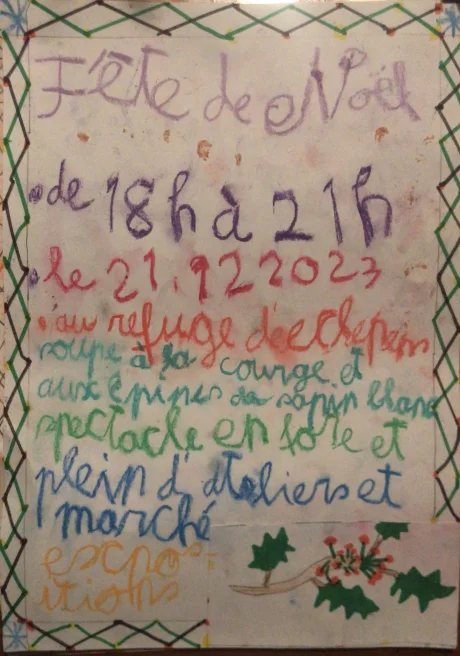 Fête de Noël
• de 18h à 21h
• le 21.12 2023
• au refuge d'eclepens
soupe à la courge et
aux épines de sapin blanc
spectacle en foret et
plein d'ateliers et
marché
expos-
itions